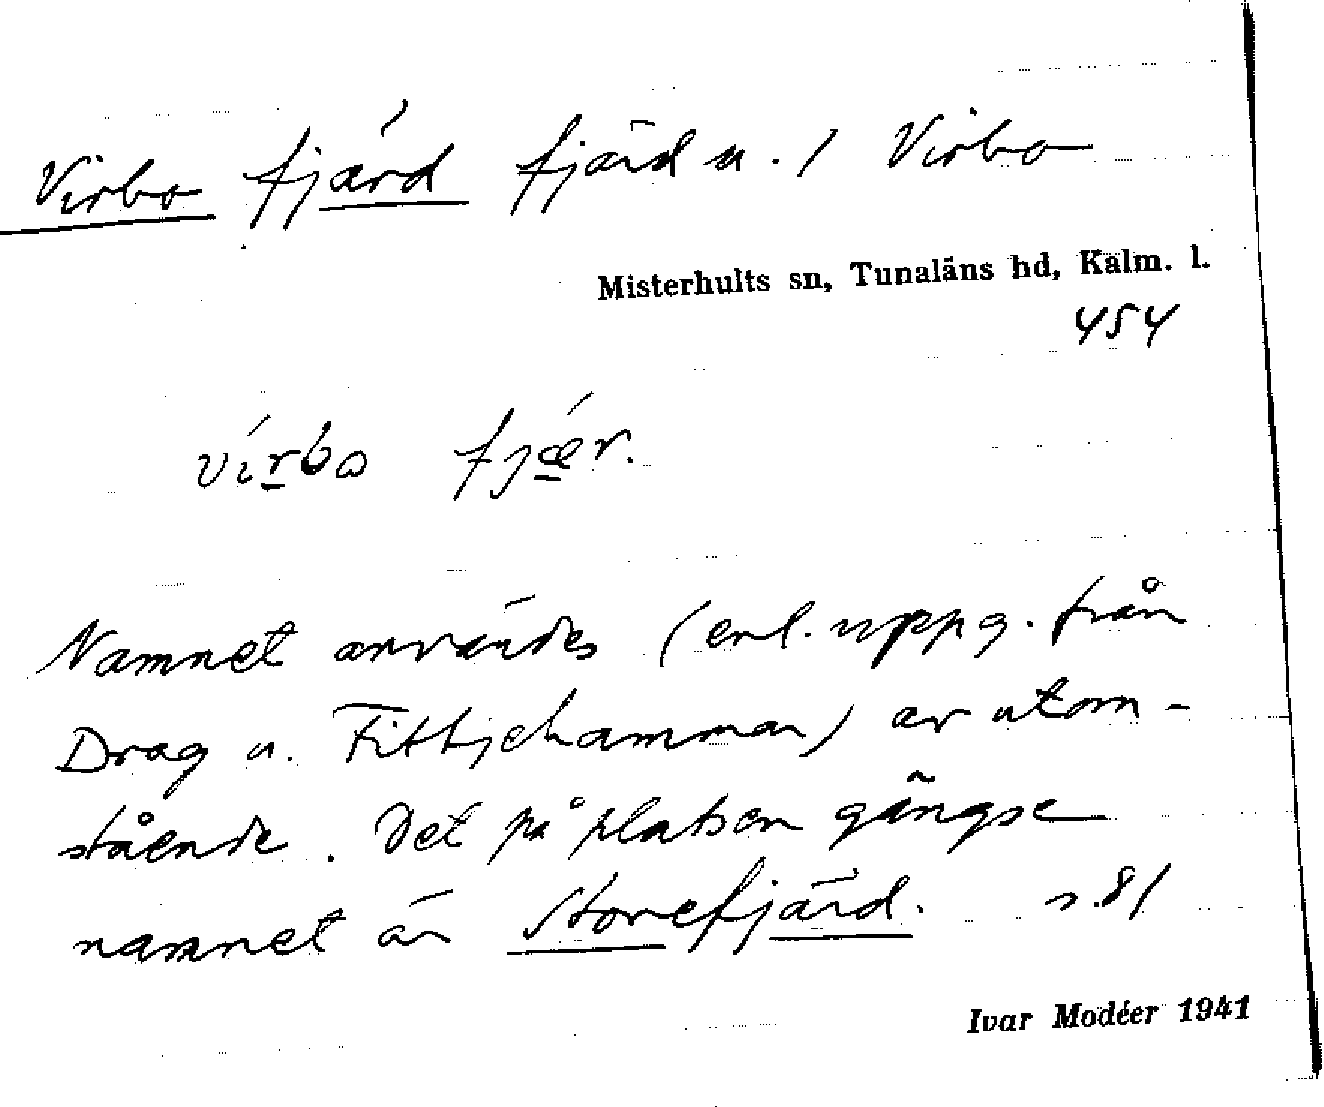 Virbo fjärd fjärd u. / Virbo
Misterhults sn, Tunaläns hd, Kalm. l.
454
vírbo fjǽr.
Namnet användes (enl. uppg. från
Drag u. Fittjehammar) av utom-
stående. Det på platsen gängse
namnet är Storefjärd. s. 81
Ivar Modéer 1941